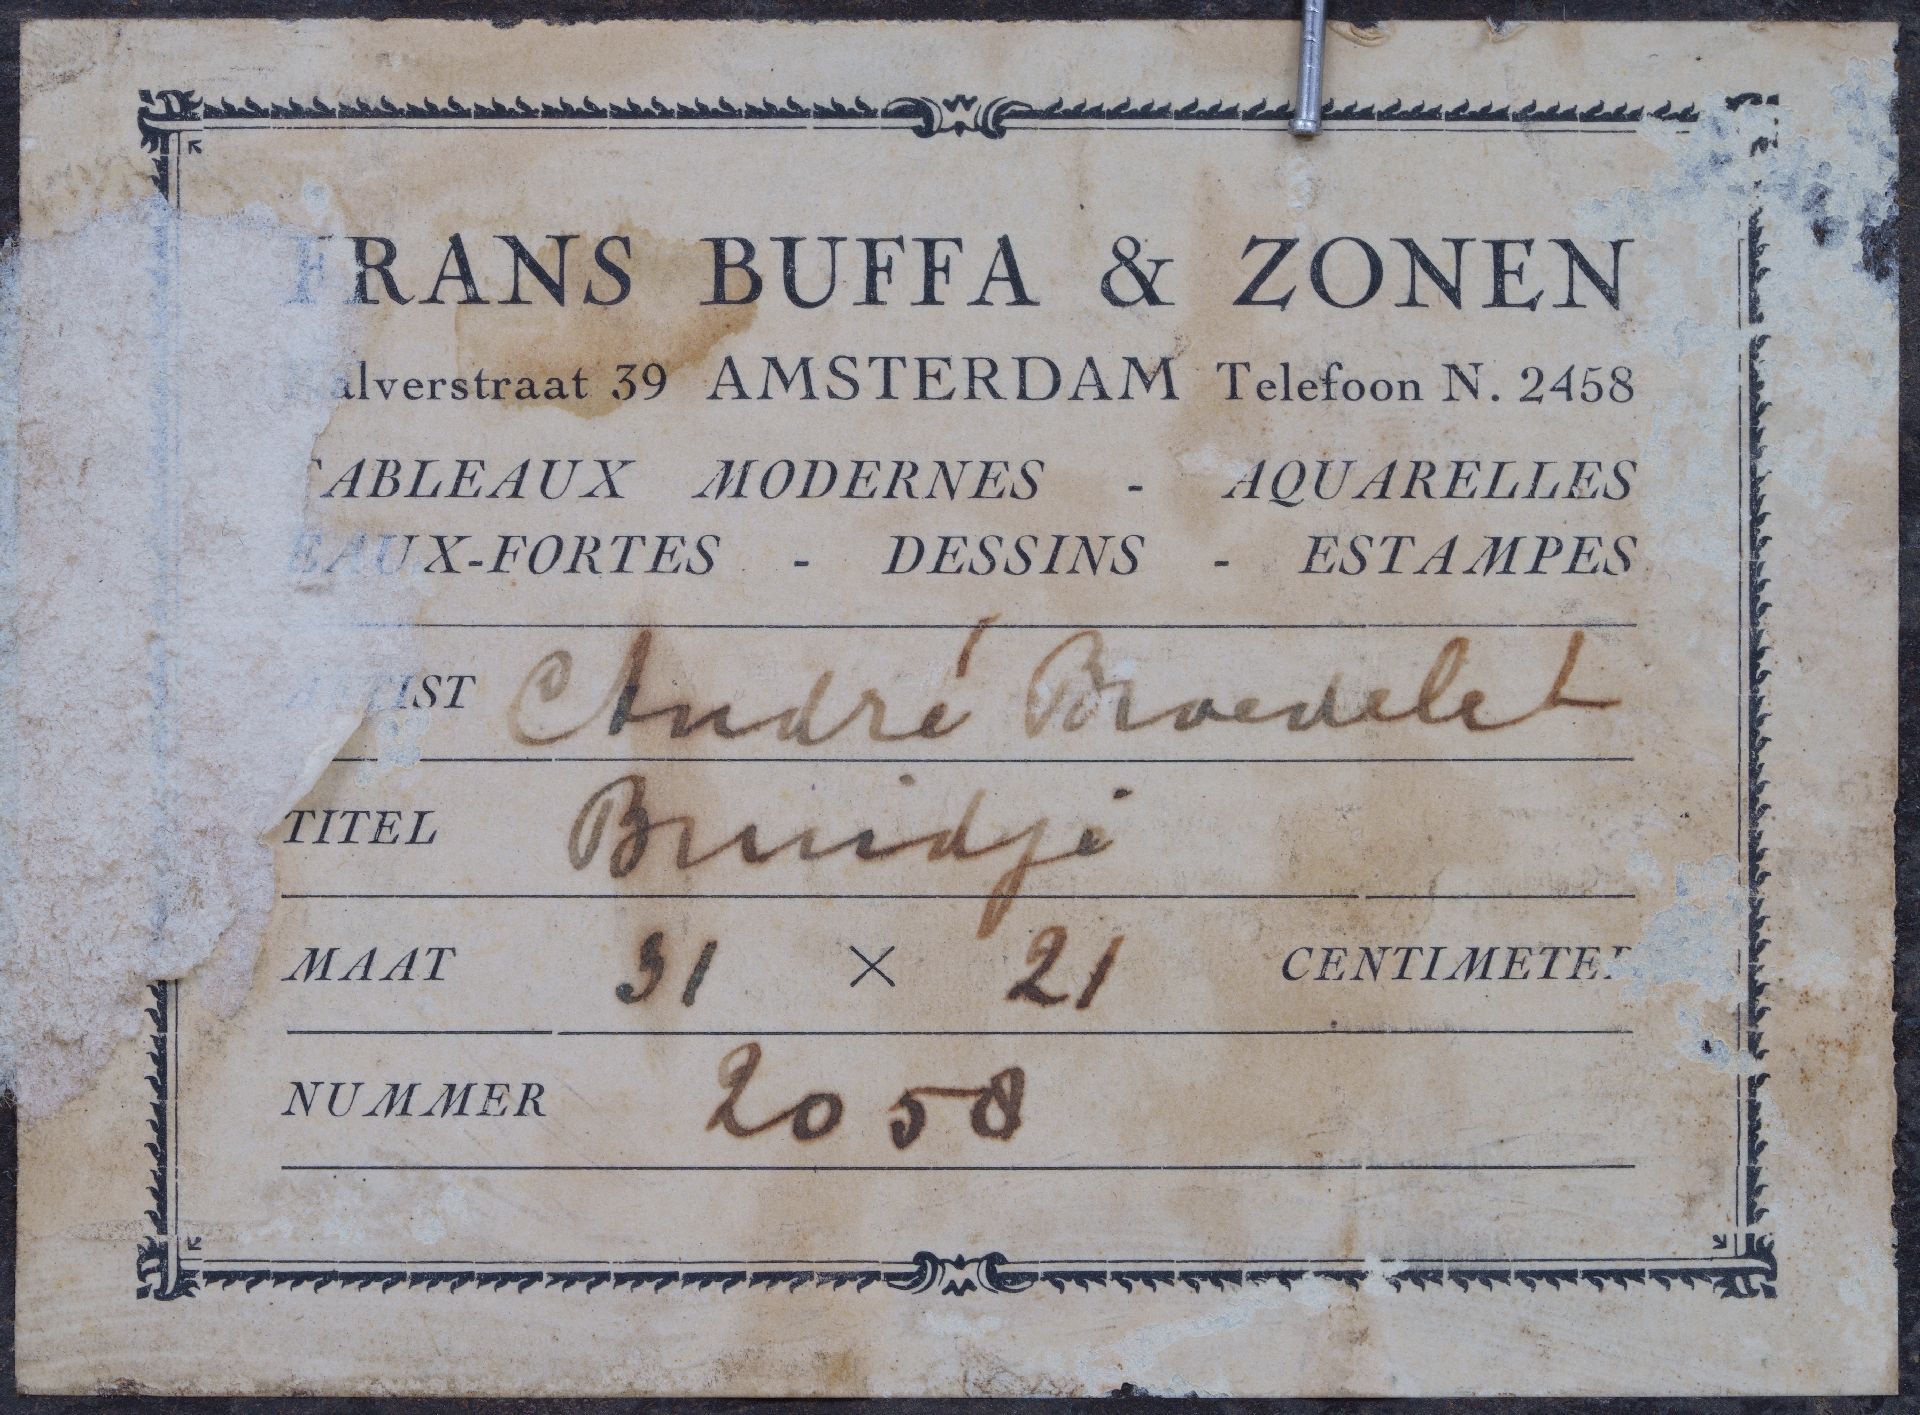 FRANS BUFFA & ZONEN
Kalverstraat 39 AMSTERDAM Telefoon N. 2458
TABLEAUX MODERNES - AQUARELLES
EAUX-FORTES - DESSINS - ESTAMPES
ARTIST André Broedelet
TITEL Bruidje
MAAT 31 × 21 CENTIMETER
NUMMER 2058